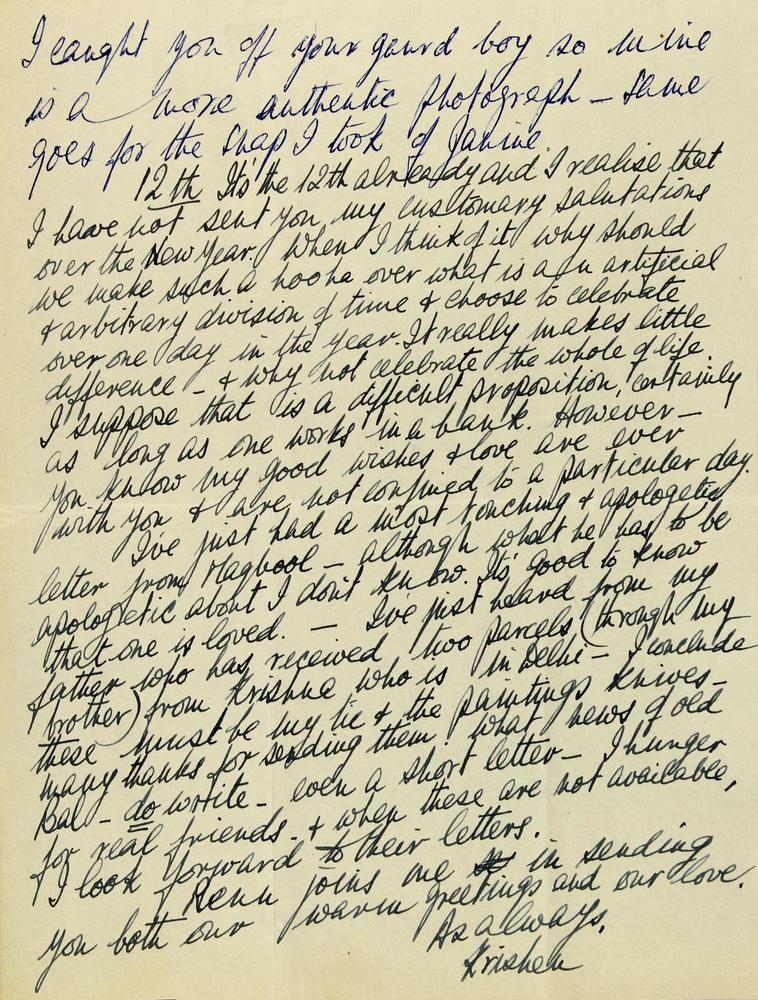 I caught you off your gaurd boy so mine
is a more authentic photograph – same
goes for the snap I took of Janine.
12th It's the 12th already and I realise that
I have not sent you my customary salutations
over the New Year. When I think of it why should
we make such a hooha over what is a n artificial
& arbitrary division of time & choose to celebrate
over one day in the year. It really makes little
difference – & why not celebrate the whole of life.
I suppose that is a difficult proposition, certainly
as long as one works in a bank. However –
you know my good wishes & love are ever
with you & are not confined to a particular day.
I've just had a most touching & apologetic
letter from Maqbool – although what he has to be
apologetic about I don't know. It's good to know
that one is loved. – I've just heard from my
father who has received two parcels (through my
brother) from Krishna who is in Delhi – I conclude
these must be my tie & the paintings knives –
many thanks for sending them. What news of old
Bal – do write – even a short letter – I hunger
for real friends & when these are not available,
I look forward to their letters.
Renu joins me in sending
you both our warm greetings and our love.
As always,
Krishen